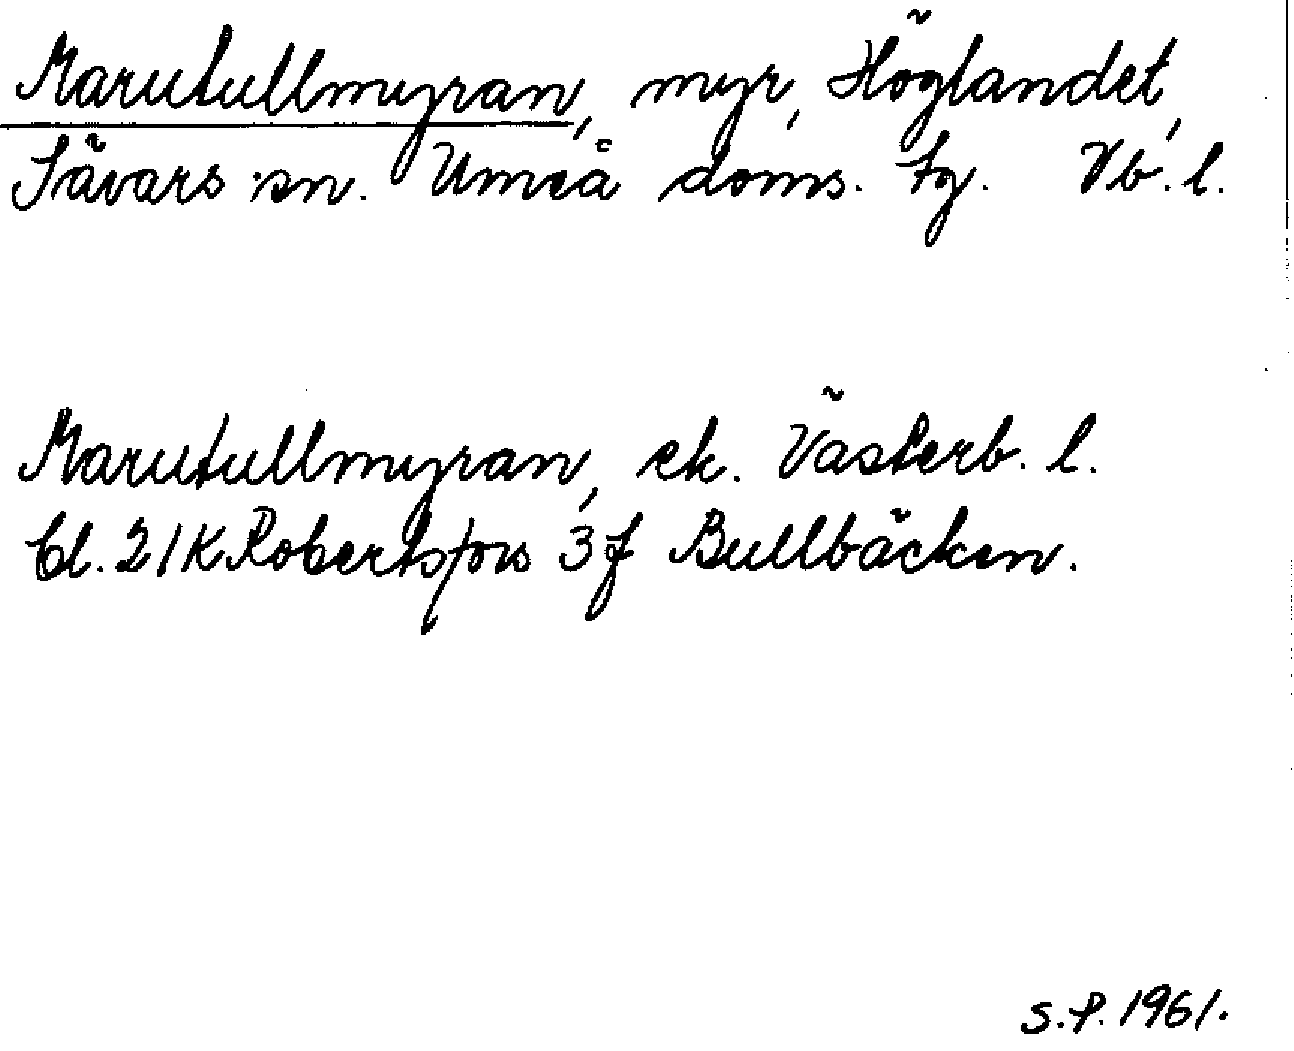 Marutullmyran, myr, Höglandet,
Sävars sn. Umeå doms. tg. Vb. l.
Marutullmyran, ek. Västerb. l.
bl. 21K Robertsfors 3f Bullbäcken.
S.P. 1961.